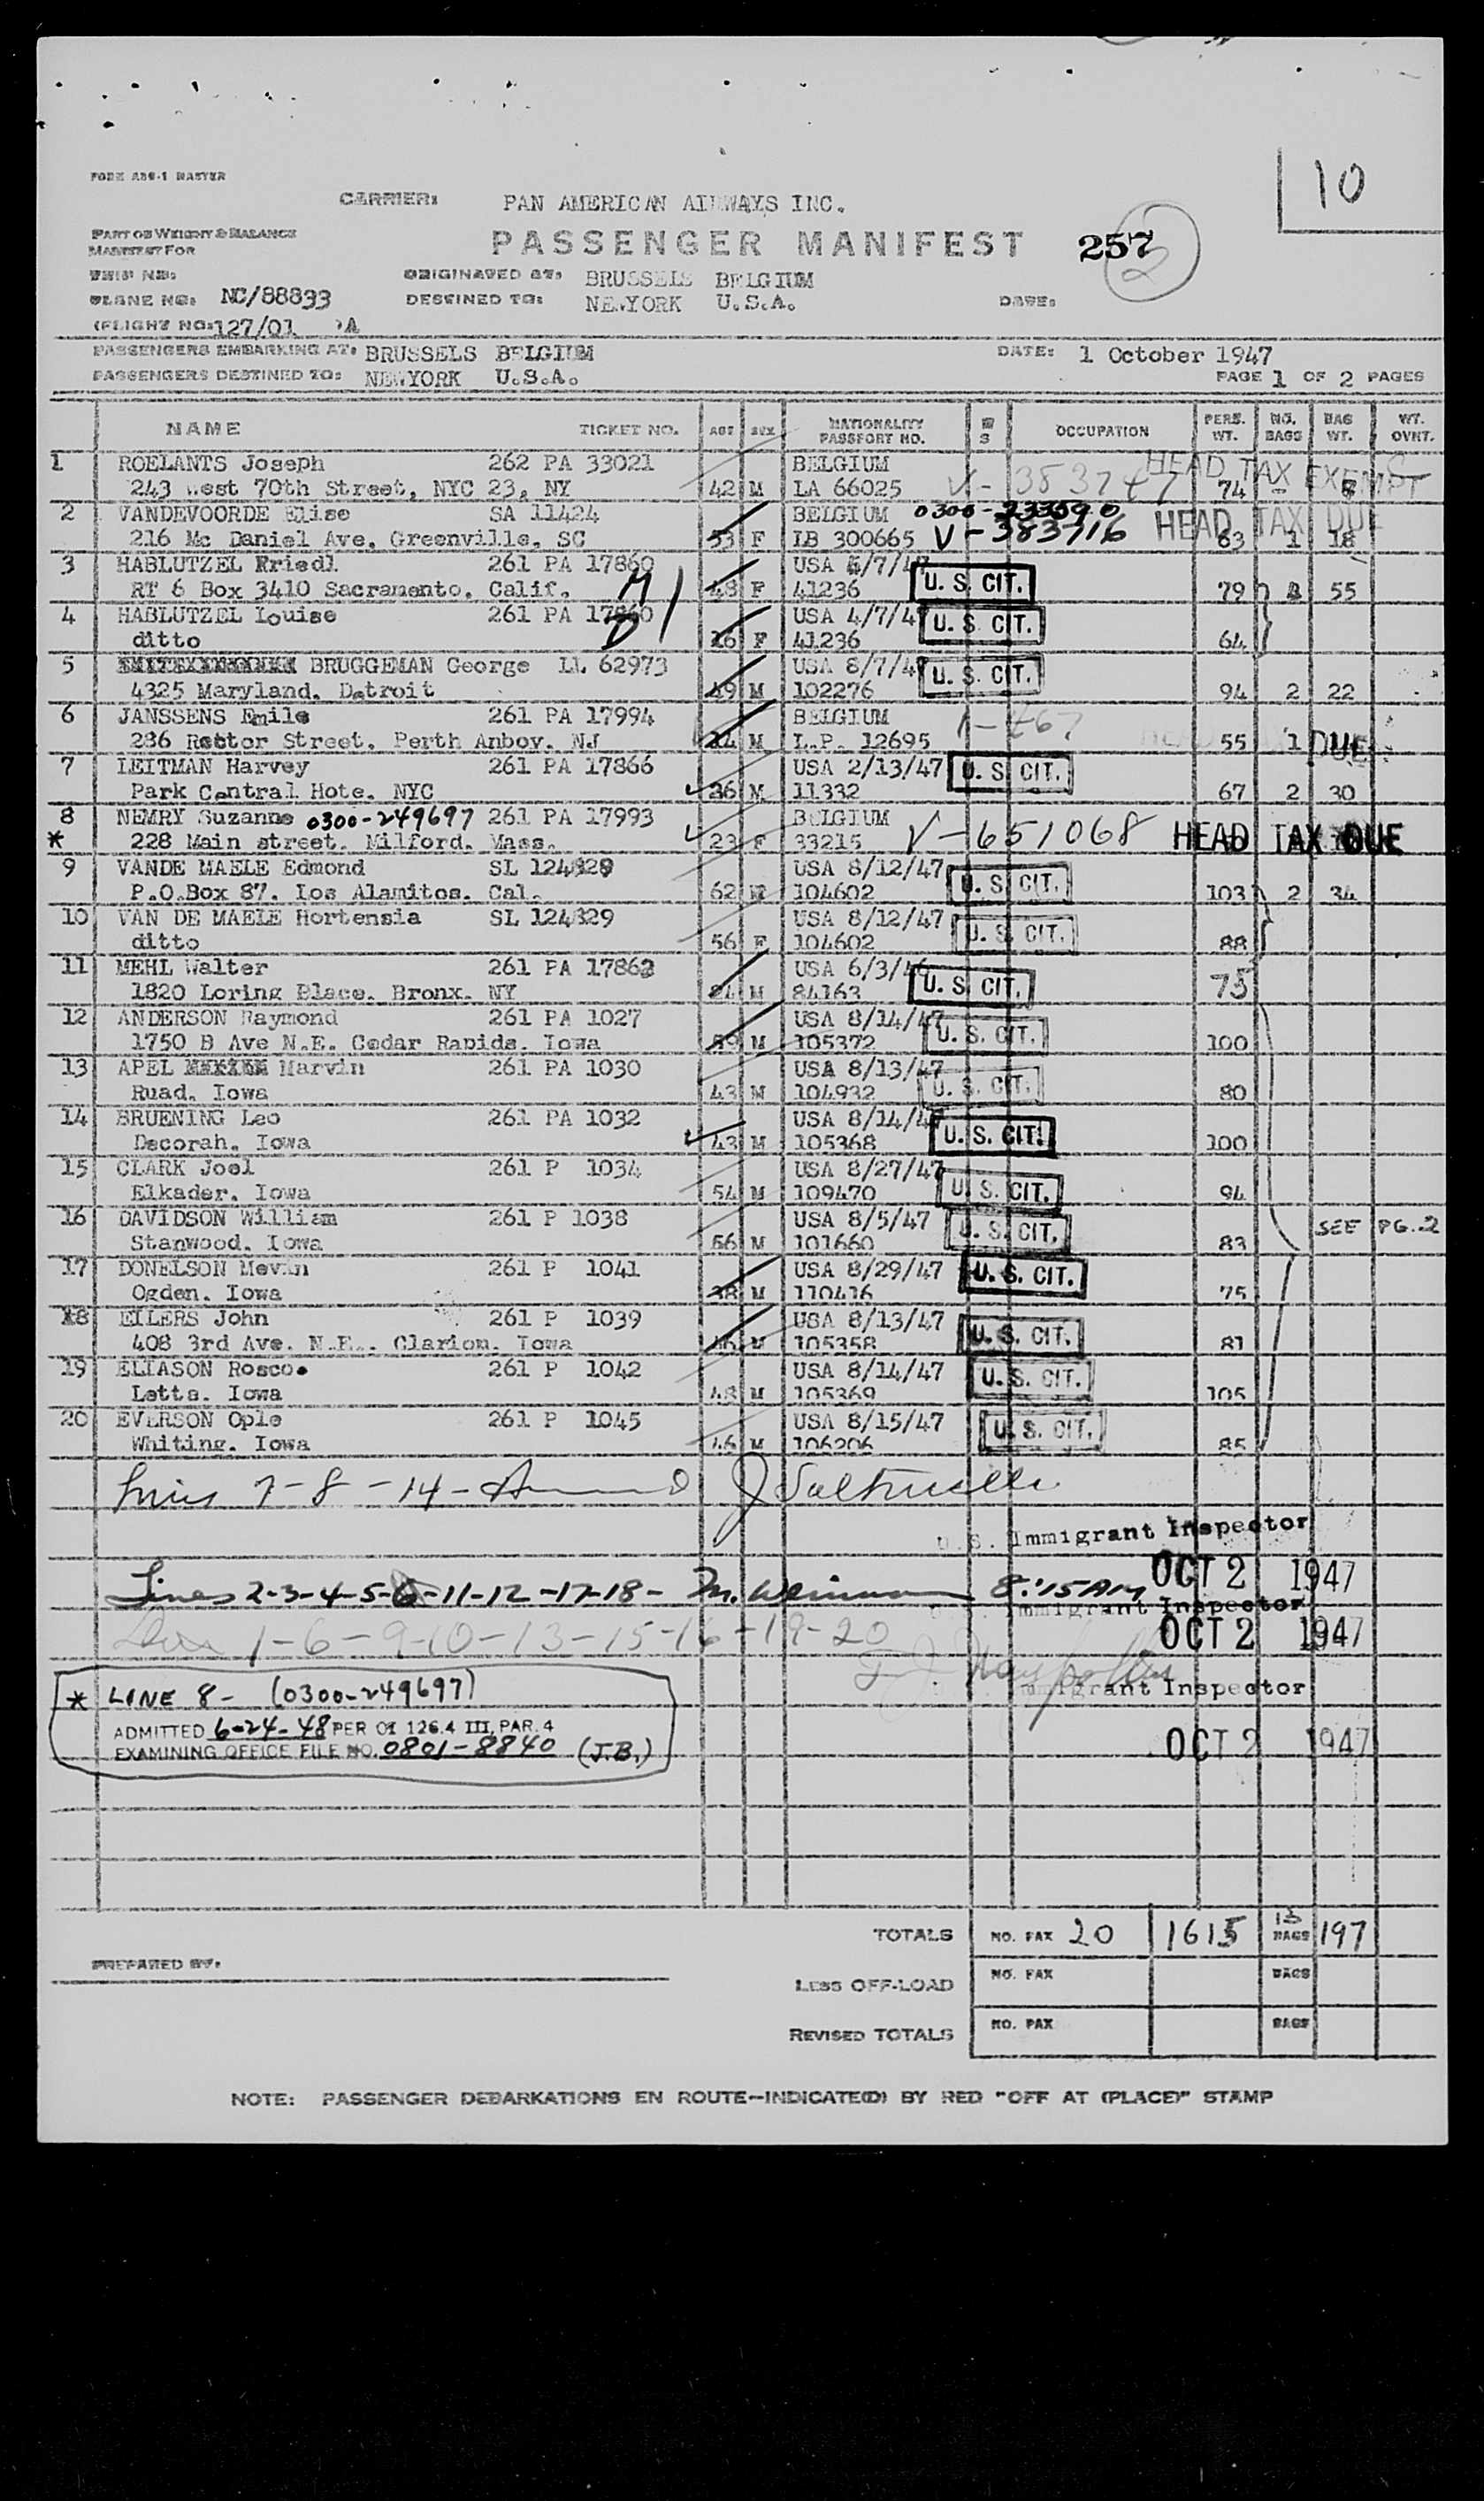 10
FORM ABS-1 MASTER
CARRIER: PAN AMERICAN AIRWAYS INC.
PART OF WEIGHT & BALANCE
MANIFEST FOR
PASSENGER MANIFEST 257 2
TRIP NO:
ORIGINATED AT: BRUSSELS BELGIUM
PLANE NO: NC/88833
DESTINED TO: NEWYORK U.S.A. DATE:
(FLIGHT NO: 127/01 )A
PASSENGERS EMBARKING AT: BRUSSELS BELGIUM DATE: 1 October 1947
PASSENGERS DESTINED TO: NEWYORK U.S.A. PAGE 1 OF 2 PAGES
NAME TICKET NO. AGE SEX NATIONALITY PASSPORT NO. M S OCCUPATION PERS. WT. NO. BAGS BAG WT. WT. OVHT.
1 ROELANTS Joseph 262 PA 33021 BELGIUM HEAD TAX EXEMPT
243 West 70th Street, NYC 23, NY 42 M LA 66025 V- 383747 74
2 VANDEVOORDE Elise SA 11424 BELGIUM 0300-233590 HEAD TAX DUE
216 Mc Daniel Ave, Greenville, SC 53 F LB 300665 V-383716 63 1 18
3 HABLUTZEL Friedl 261 PA 17860 USA 4/7/47
RT 6 Box 3410 Sacramento, Calif. 48 F 41236 U. S. CIT. 79 55
4 HABLUTZEL Louise 261 PA 17860 USA 4/7/47
ditto 16 F 41236 U. S. CIT. 64
5 BRUGGEMAN George LL 62973 USA 8/7/47
4325 Maryland, Detroit 49 M 102276 U. S. CIT. 94 2 22
6 JANSSENS Emile 261 PA 17994 BELGIUM
286 Rector Street, Perth Amboy, NJ M L.P. 12695 55 1 DUE
7 LEITMAN Harvey 261 PA 17866 USA 2/13/47 U. S. CIT.
Park Central Hote, NYC 36 M 11332 67 2 30
8 NEMRY Suzanne 0300-249697 261 PA 17993 BELGIUM
* 228 Main street, Milford, Mass. 23 F 33215 V-651068 HEAD TAX DUE
9 VANDE MAELE Edmond SL 124829 USA 8/12/47
P.O.Box 87, Los Alamitos, Cal. 62 M 104602 U. S. CIT. 103 2 34
10 VAN DE MAELE Hortensia SL 124829 USA 8/12/47
ditto 56 F 104602 U. S. CIT. 88
11 MEHL Walter 261 PA 17862 USA 6/3/46
1820 Loring Place, Bronx, NY M 84163 U. S. CIT. 75
12 ANDERSON Raymond 261 PA 1027 USA 8/14/47
1750 B Ave N.E. Cedar Rapids, Iowa 59 M 105372 U. S. CIT. 100
13 APEL Marvin 261 PA 1030 USA 8/13/47
Ruad, Iowa 43 M 104932 U. S. CIT. 80
14 BRUENING Leo 261 PA 1032 USA 8/14/47
Decorah, Iowa 43 M 105368 U. S. CIT. 100
15 CLARK Joel 261 P 1034 USA 8/27/47
Elkader, Iowa 54 M 109470 U. S. CIT. 94
16 DAVIDSON William 261 P 1038 USA 8/5/47 SEE PG. 2
Stanwood, Iowa 56 M 101660 U. S. CIT. 83
17 DONELSON Mevin 261 P 1041 USA 8/29/47 U. S. CIT.
Ogden, Iowa 38 M 110416 75
18 EILERS John 261 P 1039 USA 8/13/47
408 3rd Ave. N.E., Clarion, Iowa 46 M 105358 U. S. CIT. 81
19 ELIASON Roscoe 261 P 1042 USA 8/14/47
Letts, Iowa 48 M 105369 U. S. CIT. 105
20 EVERSON Ople 261 P 1045 USA 8/15/47
Whiting, Iowa 46 M 106206 U. S. CIT. 85
Lines 7-8-14-
U. S. Immigrant Inspector
OCT 2 1947
Lines 2-3-4-5-6-11-12-17-18- 8:15 AM
Immigrant Inspector
OCT 2 1947
1-6-9-10-13-15-16-19-20
Immigrant Inspector
OCT 2 1947
* LINE 8- (0300-249697)
ADMITTED 6-24-48 PER OI 126.4 III, PAR. 4
EXAMINING OFFICE FILE NO. 0801-8840 (J.B.)
TOTALS NO. PAX 20 1615 13 BAGS 197
PREPARED BY:
LESS OFF-LOAD NO. PAX BAGS
REVISED TOTALS NO. PAX BAGS
NOTE: PASSENGER DEBARKATIONS EN ROUTE-INDICATE(D) BY RED "OFF AT (PLACE)" STAMP